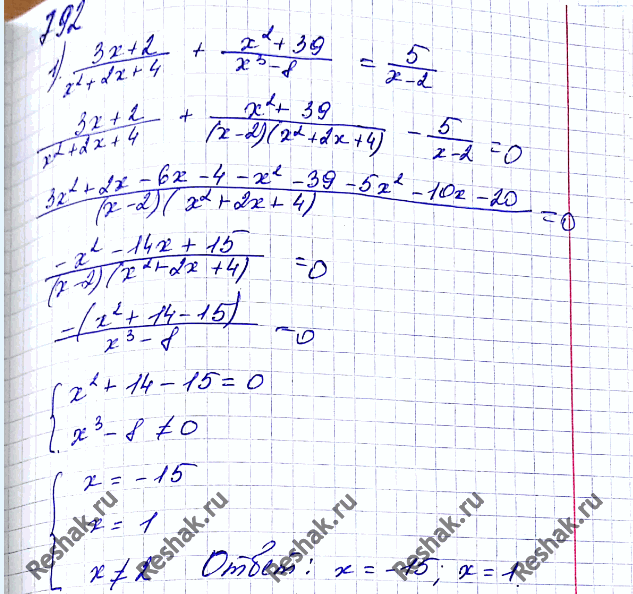 792
1) (3x+2)/(x²+2x+4) + (x²+39)/(x³-8) = 5/(x-2)
(3x+2)/(x²+2x+4) + (x²+39)/((x-2)(x²+2x+4)) - 5/(x-2) = 0
(3x²+2x-6x-4-x²-39-5x²-10x-20)/((x-2)(x²+2x+4)) = 0
(-x²-14x+15)/((x-2)(x²+2x+4)) = 0
(-(x²+14-15))/(x³-8) = 0
{ x²+14-15=0
x³-8≠0
{ x=-15
x=1
x≠2 Ответ: x=-15; x=1.
Reshak.ru Reshak.ru Reshak.ru Reshak.ru Reshak.ru